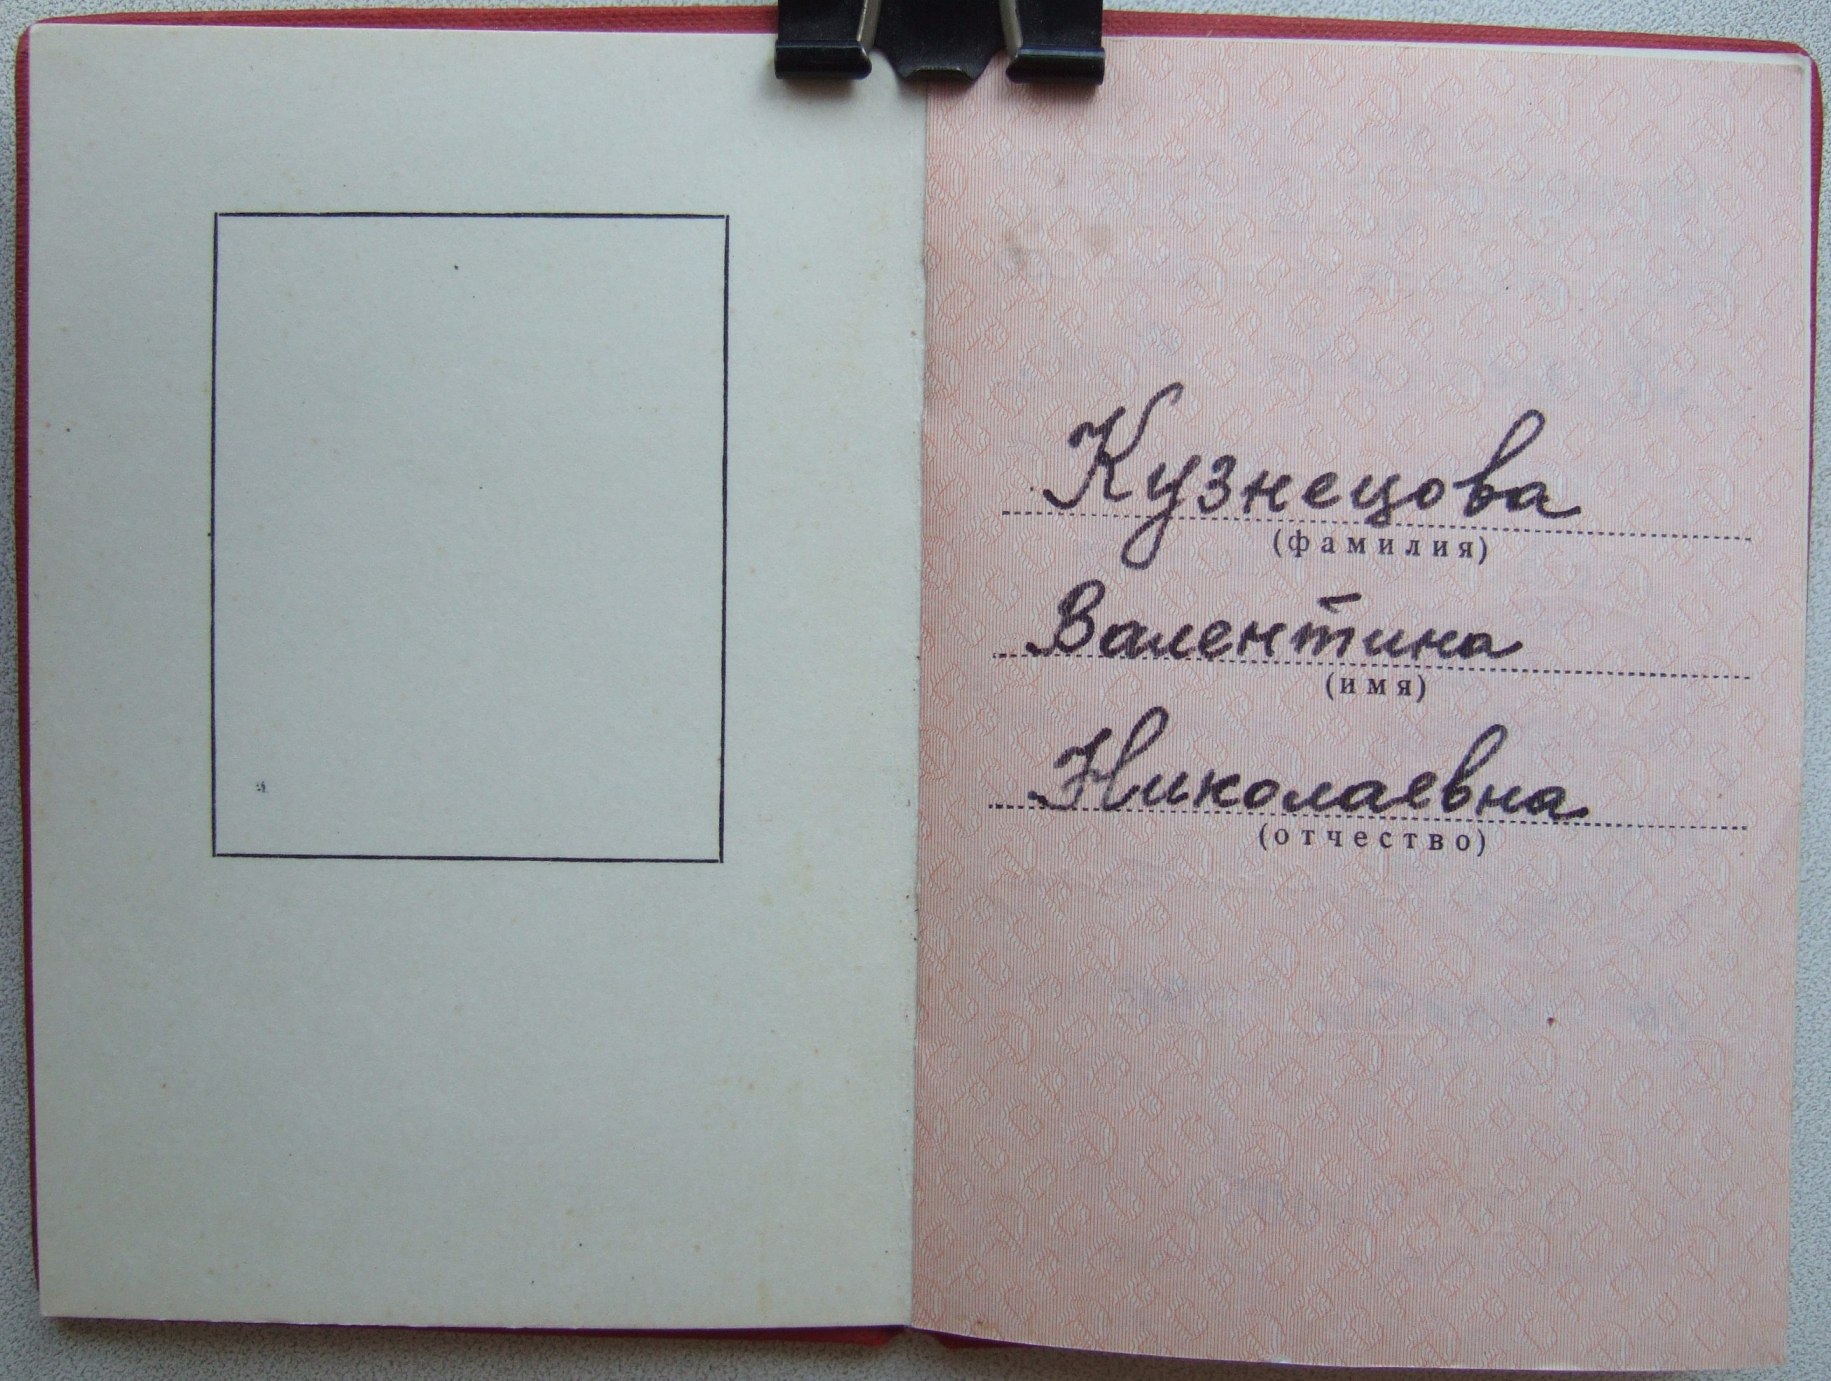 Кузнецова
(фамилия)
Валентина
(имя)
Николаевна
(отчество)